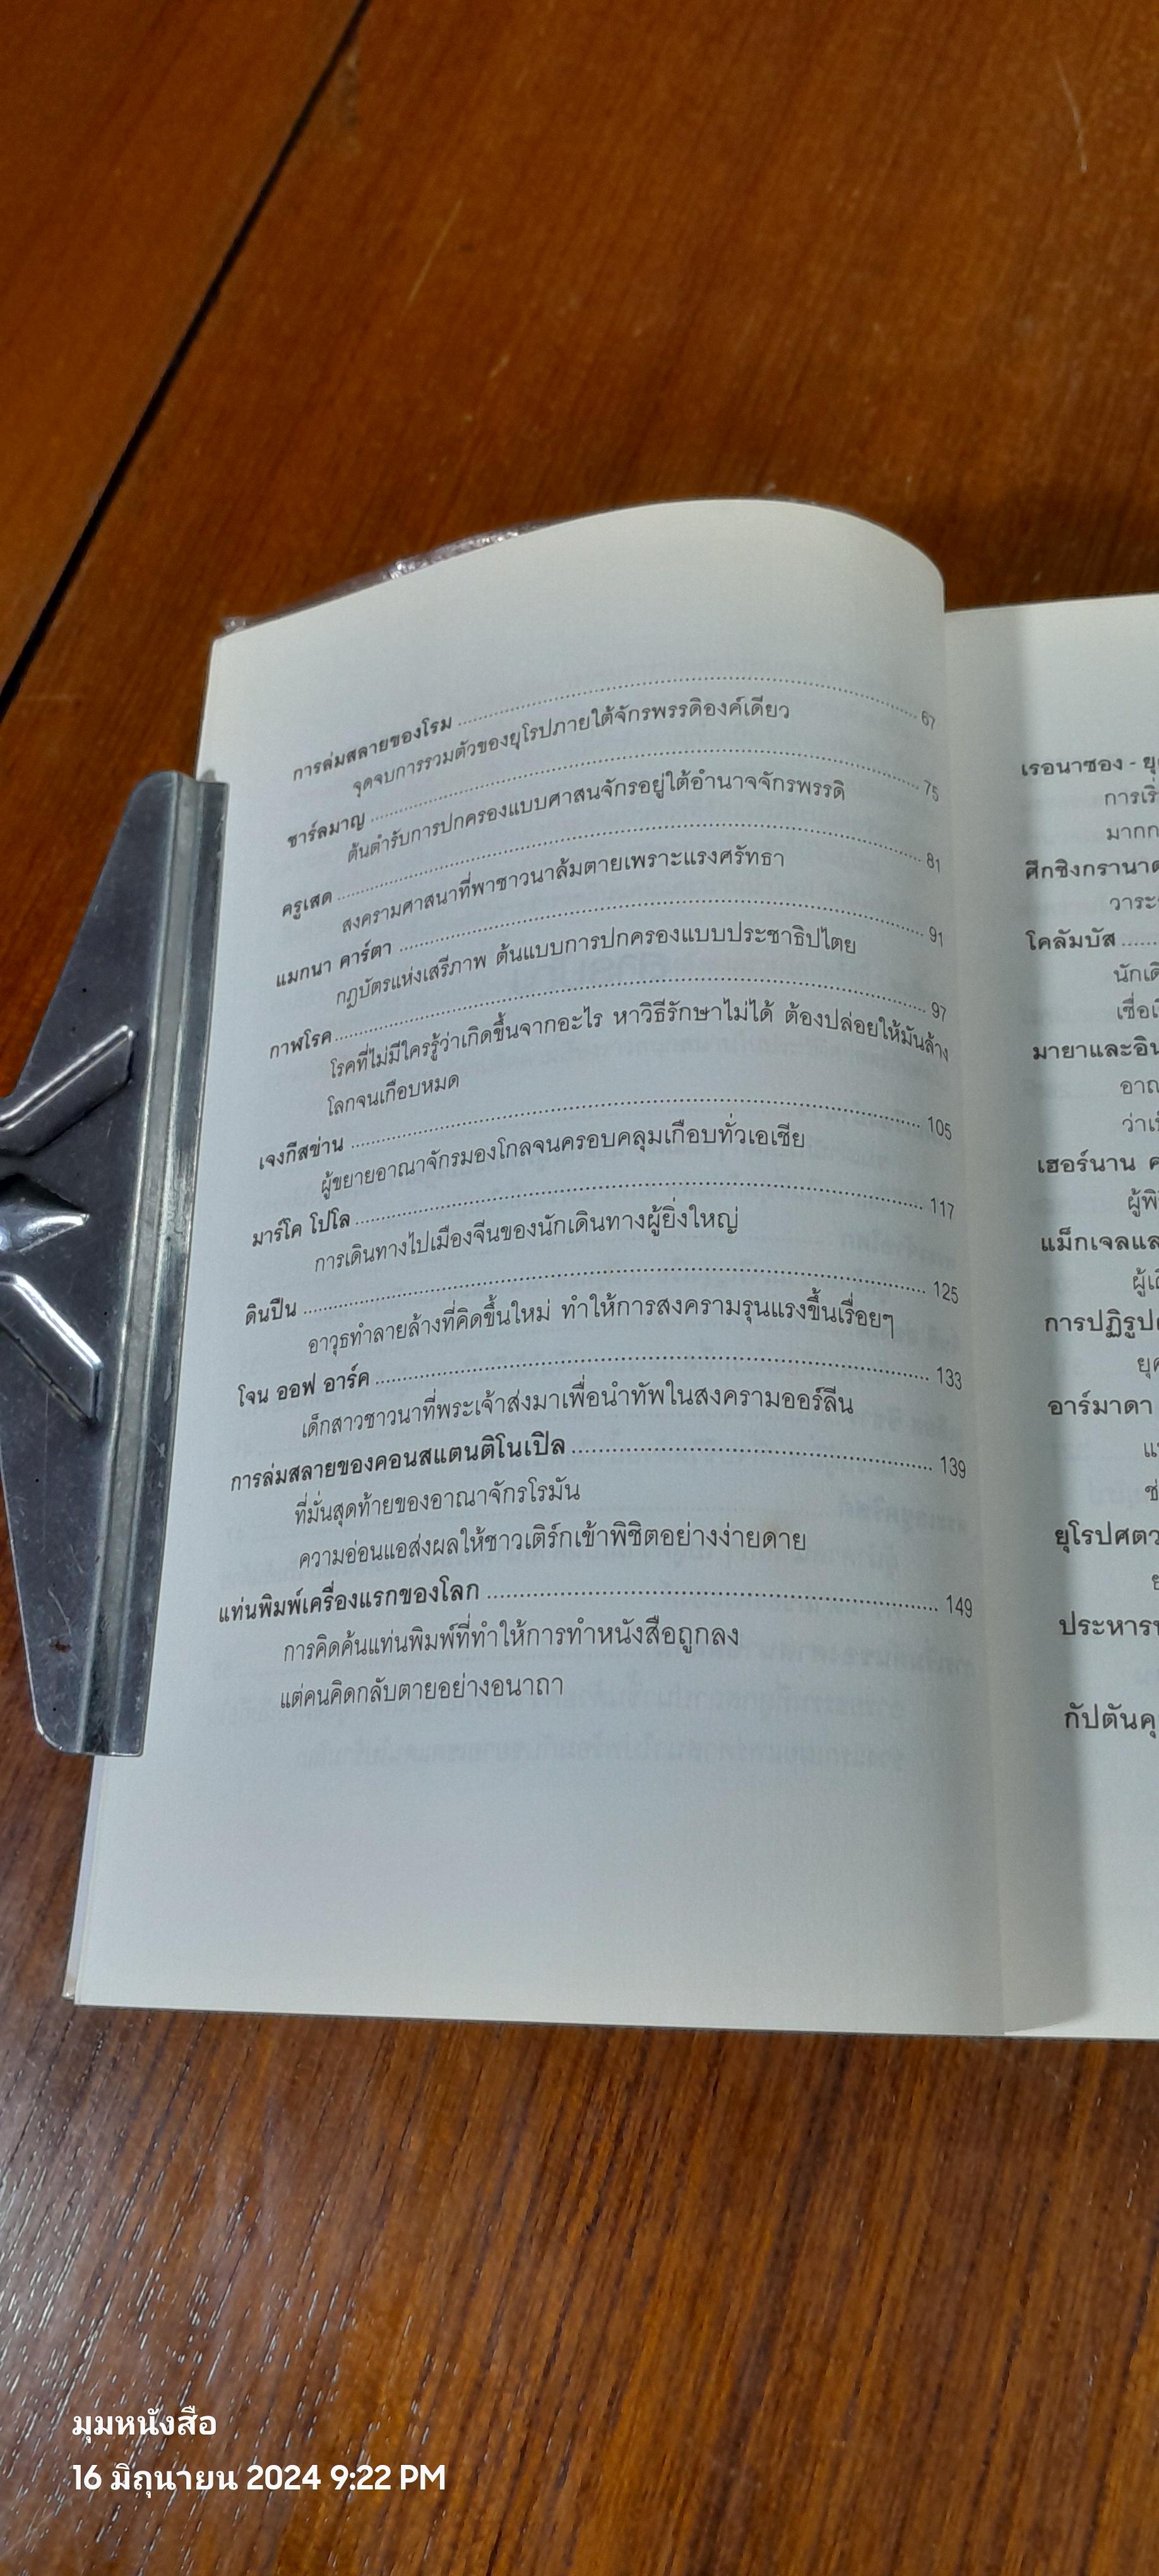 การล่มสลายของโรม ........................................ 67
จุดจบการรวมตัวของยุโรปภายใต้จักรพรรดิองค์เดียว
ชาร์ลมาญ ........................................ 75
ต้นตำรับการปกครองแบบศาสนจักรอยู่ใต้อำนาจจักรพรรดิ
ครูเสด ........................................ 81
สงครามศาสนาที่พาชาวนาล้มตายเพราะแรงศรัทธา
แมกนา คาร์ตา ........................................ 91
กฎบัตรแห่งเสรีภาพ ต้นแบบการปกครองแบบประชาธิปไตย
กาฬโรค ........................................ 97
โรคที่ไม่มีใครรู้ว่าเกิดขึ้นจากอะไร หาวิธีรักษาไม่ได้ ต้องปล่อยให้มันล้าง
โลกจนเกือบหมด
เจงกีสข่าน ........................................ 105
ผู้ขยายอาณาจักรมองโกลจนครอบคลุมเกือบทั่วเอเชีย
มาร์โค โปโล ........................................ 117
การเดินทางไปเมืองจีนของนักเดินทางผู้ยิ่งใหญ่
ดินปืน ........................................ 125
อาวุธทำลายล้างที่คิดขึ้นใหม่ ทำให้การสงครามรุนแรงขึ้นเรื่อยๆ
โจน ออฟ อาร์ค ........................................ 133
เด็กสาวชาวนาที่พระเจ้าส่งมาเพื่อนำทัพในสงครามออร์ลีน
การล่มสลายของคอนสแตนติโนเปิล ........................................ 139
ที่มั่นสุดท้ายของอาณาจักรโรมัน
ความอ่อนแอส่งผลให้ชาวเติร์กเข้าพิชิตอย่างง่ายดาย
แท่นพิมพ์เครื่องแรกของโลก ........................................ 149
การคิดค้นแท่นพิมพ์ที่ทำให้การทำหนังสือถูกลง
แต่คนคิดกลับตายอย่างอนาถา
เรอนาซอง -
การเริ่
มากก
ศึกชิงกรานาด
วาระ
โคลัมบัส ......
นักเดิ
เชื่อ
มายาและอิน
อาณ
ว่าเ
เฮอร์นาน ค
ผู้พิ
แม็กเจลแล
ผู้เ
การปฏิรูป
ยุค
อาร์มาดา
แ
ช่
ยุโรปศตว
ประหาร
กัปตันคุ
มุมหนังสือ
16 มิถุนายน 2024 9:22 PM